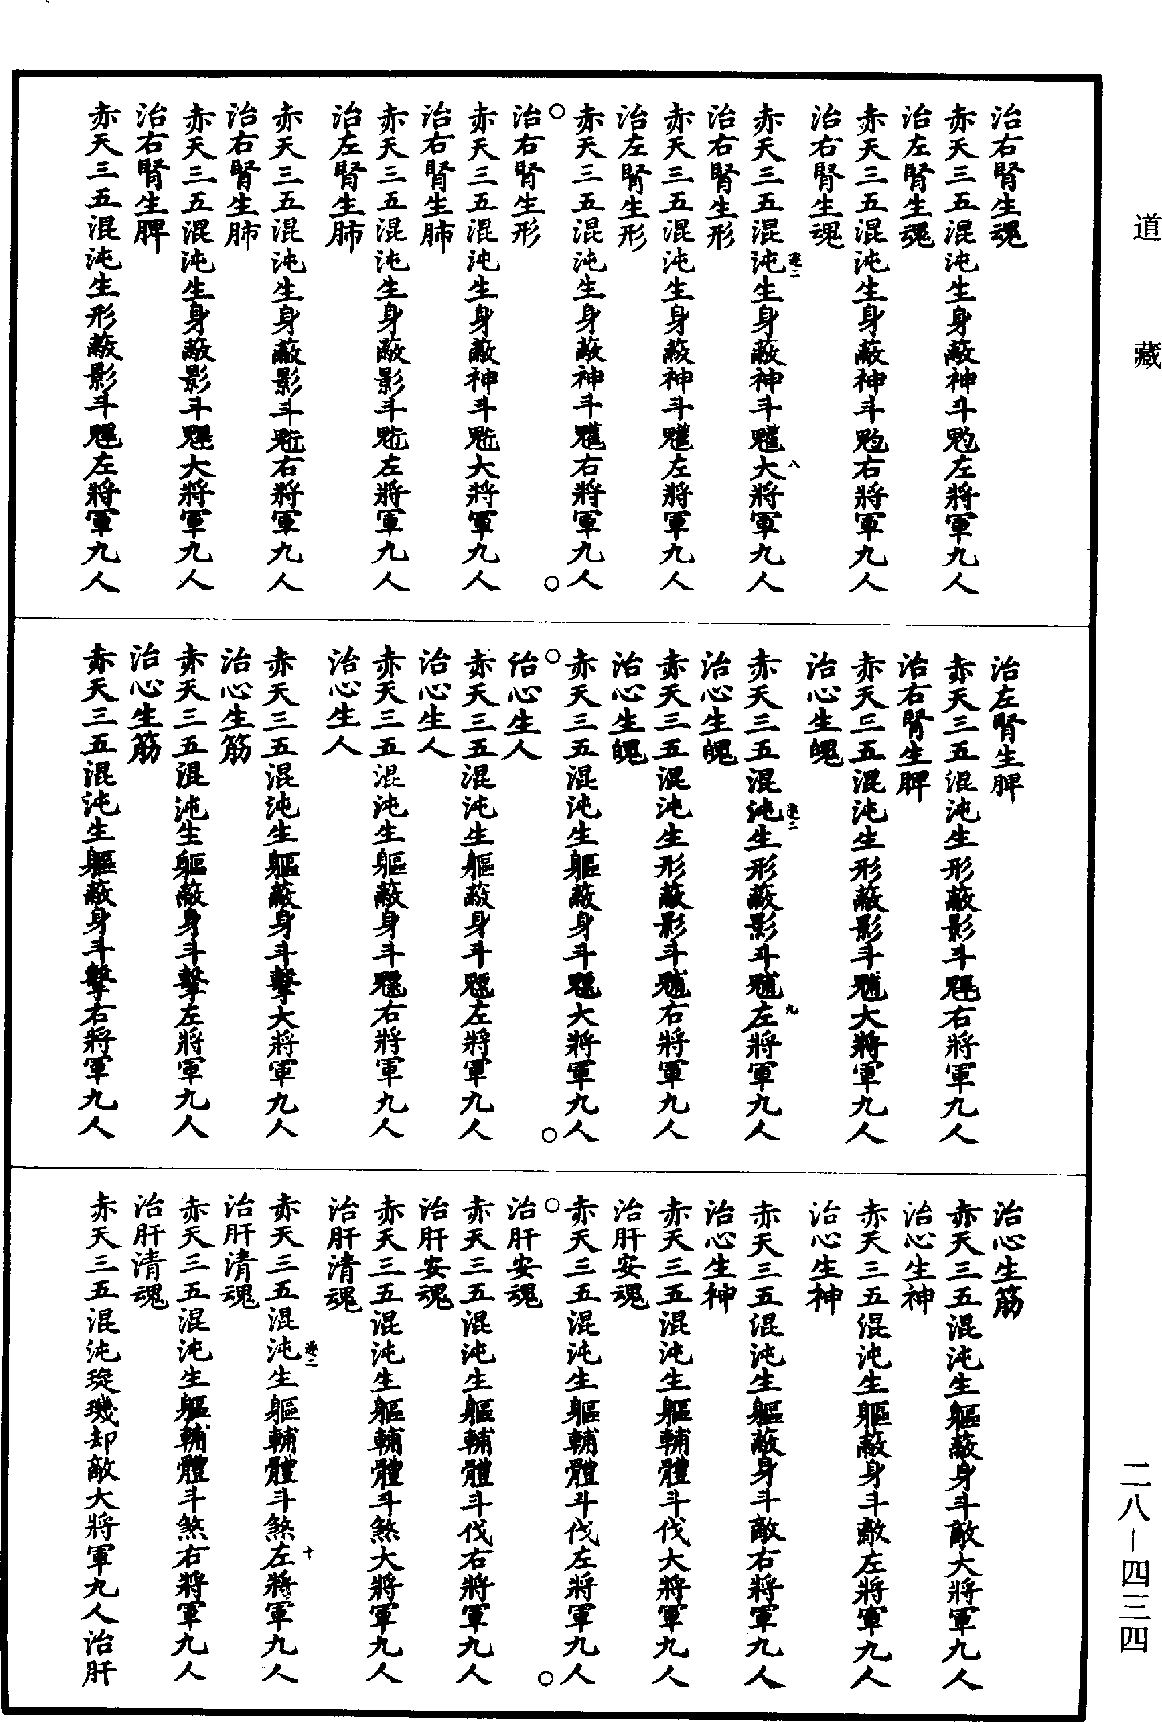 道藏
治右腎生魂
赤天三五混沌生身蔽神斗左將軍九人
治左腎生魂
赤天三五混沌生身蔽神斗右將軍九人
治右腎生魂
赤天三五混沌生身蔽神斗大將軍九人
卷二 八
治右腎生形
赤天三五混沌生身蔽神斗左將軍九人
治左腎生形
赤天三五混沌生身蔽神斗右將軍九人
治右腎生形
赤天三五混沌生身蔽神斗大將軍九人
治右腎生肺
赤天三五混沌生身蔽影斗左將軍九人
治左腎生肺
赤天三五混沌生身蔽影斗右將軍九人
治右腎生肺
赤天三五混沌生身蔽影斗大將軍九人
治右腎生脾
赤天三五混沌生形蔽影斗左將軍九人
治左腎生脾
赤天三五混沌生形蔽影斗右將軍九人
治右腎生脾
赤天三五混沌生形蔽影斗大將軍九人
治心生魄
赤天三五混沌生形蔽影斗左將軍九人
卷二 九
治心生魄
赤天三五混沌生形蔽影斗右將軍九人
治心生魄
赤天三五混沌生軀蔽身斗大將軍九人
治心生人
赤天三五混沌生軀蔽身斗左將軍九人
治心生人
赤天三五混沌生軀蔽身斗右將軍九人
治心生人
赤天三五混沌生軀蔽身斗擊大將軍九人
治心生筋
赤天三五混沌生軀蔽身斗擊左將軍九人
治心生筋
赤天三五混沌生軀蔽身斗擊右將軍九人
治心生筋
赤天三五混沌生軀蔽身斗敵大將軍九人
治心生神
赤天三五混沌生軀蔽身斗敵左將軍九人
治心生神
赤天三五混沌生軀蔽身斗敵右將軍九人
治心生神
赤天三五混沌生軀輔體斗伐大將軍九人
治肝安魂
赤天三五混沌生軀輔體斗伐左將軍九人
治肝安魂
赤天三五混沌生軀輔體斗伐右將軍九人
治肝安魂
赤天三五混沌生軀輔體斗煞大將軍九人
治肝清魂
赤天三五混沌生軀輔體斗煞左將軍九人
卷二 十
治肝清魂
赤天三五混沌生軀輔體斗煞右將軍九人
治肝清魂
赤天三五混沌琁璣却敵大將軍九人治肝
二八-四三四